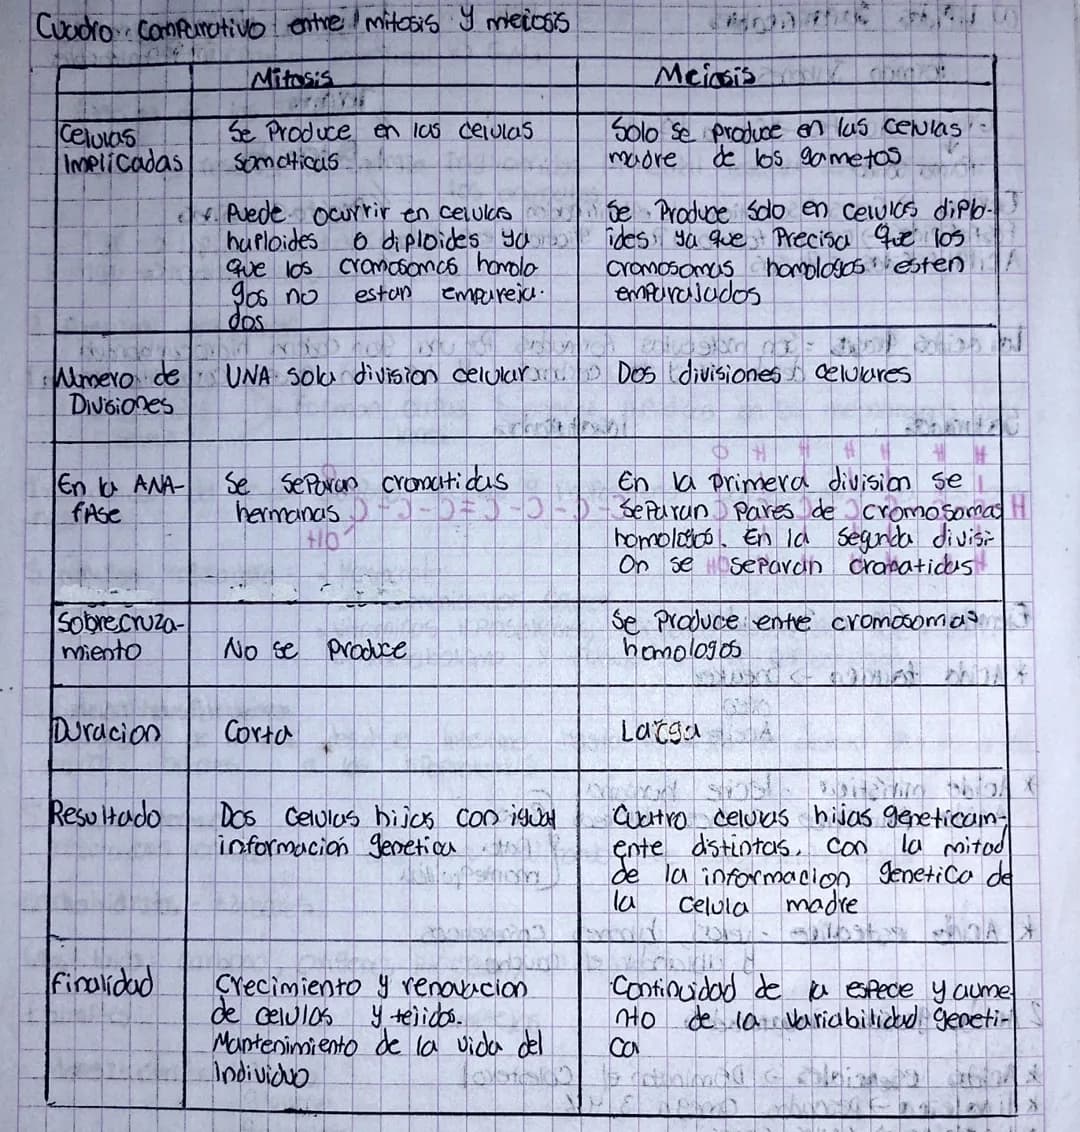 Cuadro Comparativo entre mitosis y meiosis
Mitosis
Meiosis
Celulas
Implicadas
Se Produce en las celulas
somaticas
Puede ocurrir en celulas
haploides o diploides ya
que los cromosomas homolo
gos no estan empareja-
dos
Solo se produce en las celulas
madre de los gametos
Se Produce solo en celulas diplo-
ides ya que Precisa que los
cromosomas homologos esten
emparajados
Numero de
Divisiones
UNA sola division celular
Dos divisiones celulares
En la ANA-
fAse
Se separan cromatidas
hermanas
En la primera division se
separan pares de cromosomas
homologos. En la segnda divisi-
on se separan cromatidas
Sobrecruza-
miento
No se produce
Se Produce entre cromosomas
homologos
Duracion
Corta
Larga
Resultado
Dos celulas hijas con igual
información genetica
Cuatro celulas hijas geneticam-
ente distintas, con la mitad
de la informacion genetica de
la celula madre
finalidad
Crecimiento y renovacion
de celulas y tejidos.
Mantenimiento de la vida del
Individuo
Continuidad de la especie y aume
nto de la variabilidad geneti-
ca